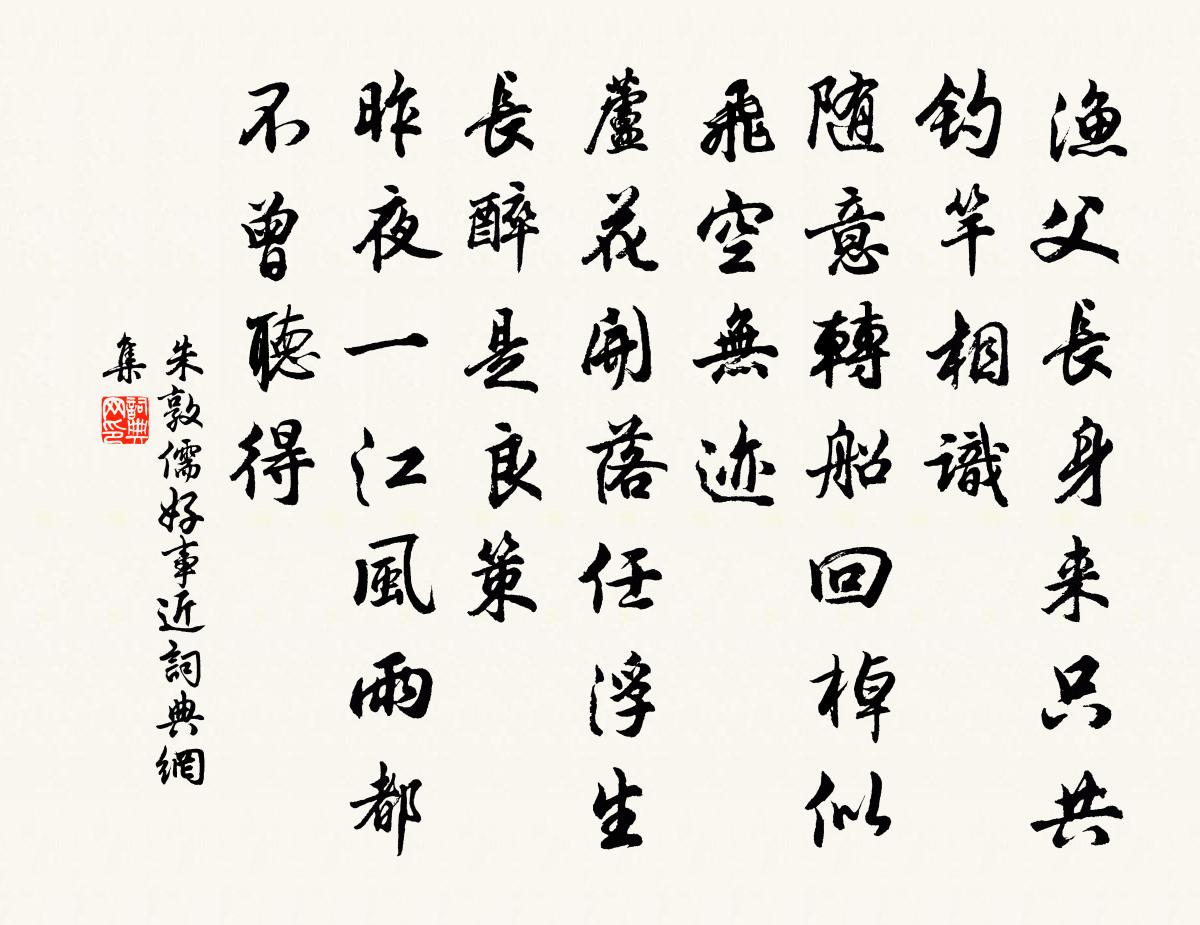 漁父長身来只共
釣竿相識
随意轉船回棹似
飛空無迹
蘆花開落任浮生
長醉是良策
昨夜一江風雨都
不曾聽得
朱敦儒好事近詞典網
集
詞典
网印